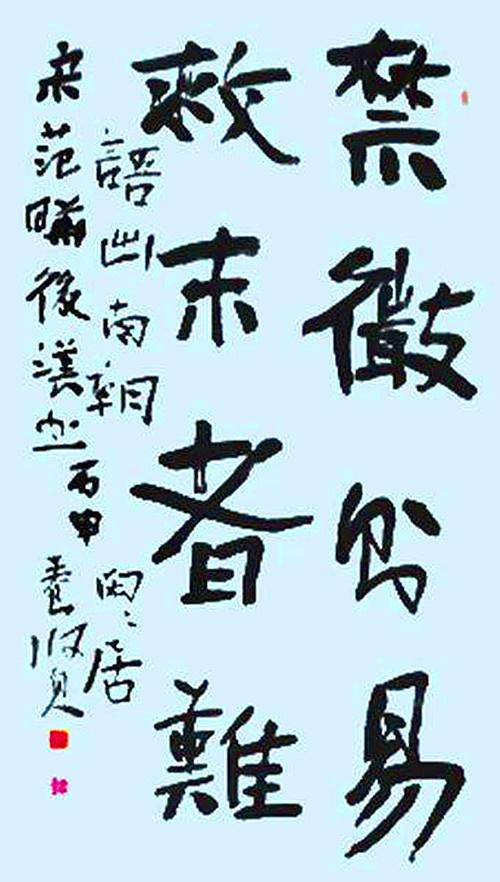 禁微則易
救末者難
語出南朝
宋范曄後漢書
丙申
居
賢